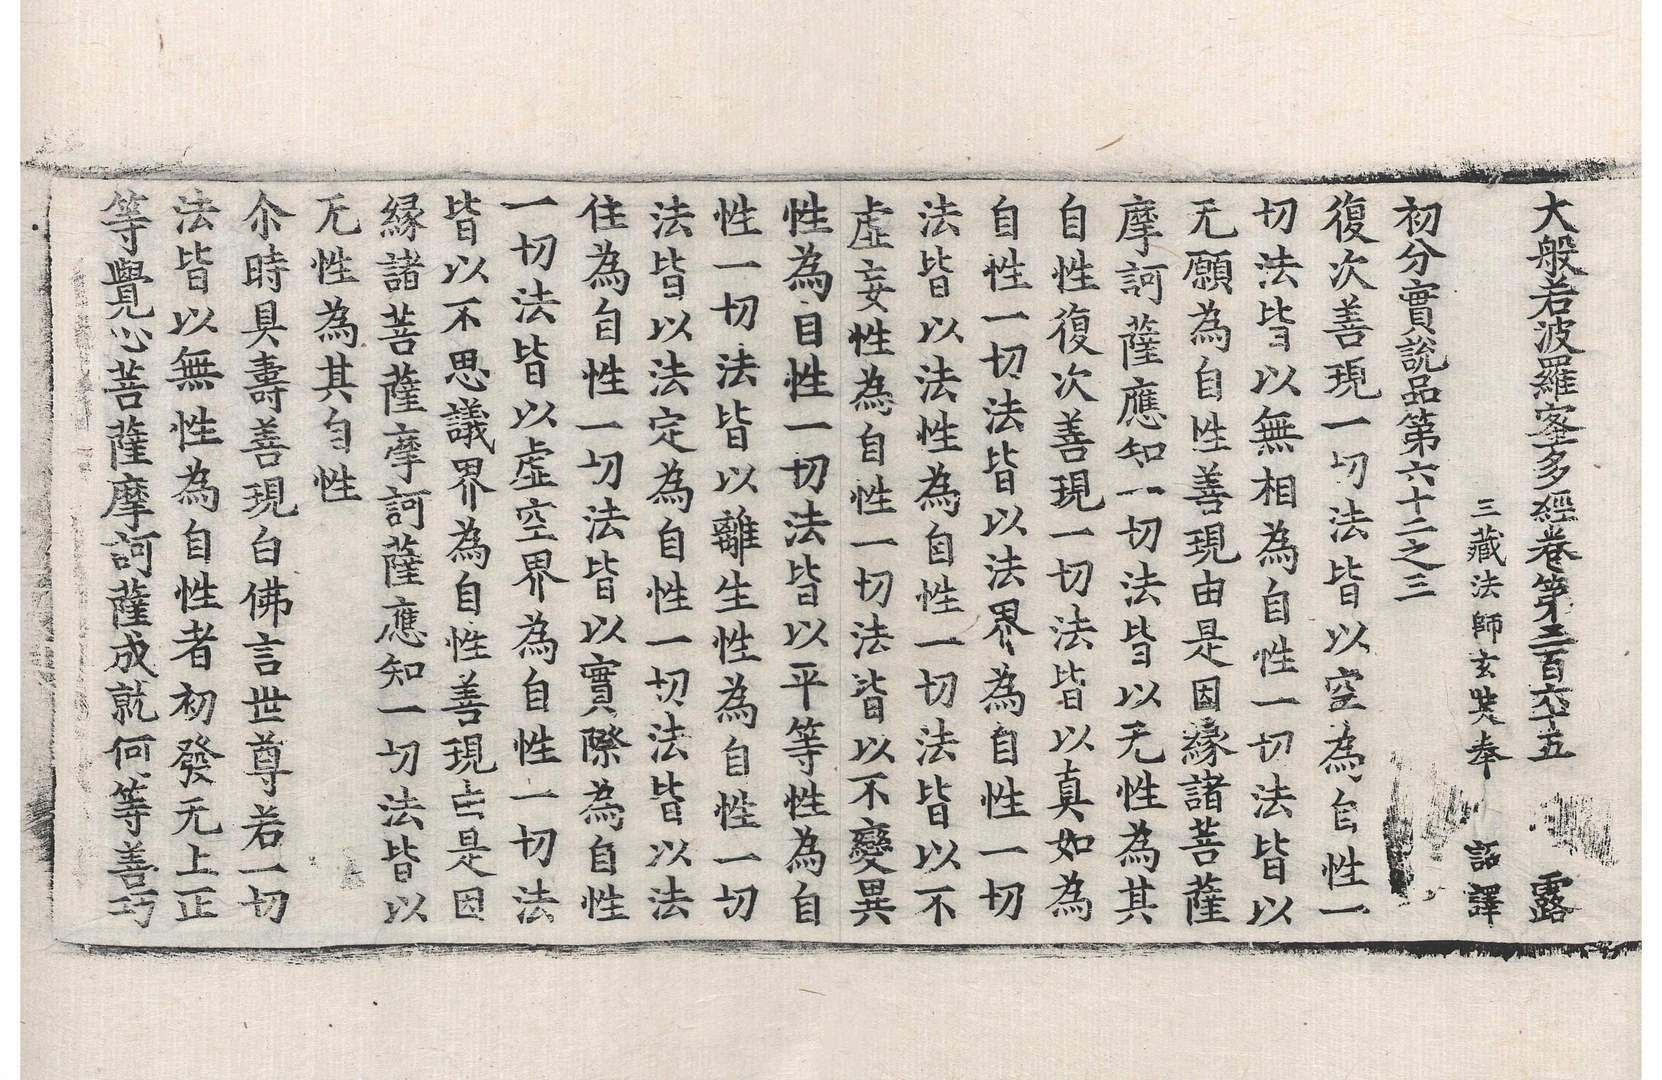 大般若波羅蜜多經卷第三百六十五 露
三藏法師玄奘奉 詔譯
初分實說品第六十二之三
復次善現一切法皆以空為自性一
切法皆以無相為自性一切法皆以
无願為自性善現由是因緣諸菩薩
摩訶薩應知一切法皆以无性為其
自性復次善現一切法皆以真如為
自性一切法皆以法界為自性一切
法皆以法性為自性一切法皆以不
虛妄性為自性一切法皆以不變異
性為自性一切法皆以平等性為自
性一切法皆以離生性為自性一切
法皆以法定為自性一切法皆以法
住為自性一切法皆以實際為自性
一切法皆以虛空界為自性一切法
皆以不思議界為自性善現由是因
緣諸菩薩摩訶薩應知一切法皆以
无性為其自性
尒時具壽善現白佛言世尊若一切
法皆以無性為自性者初發无上正
等覺心菩薩摩訶薩成就何等善巧